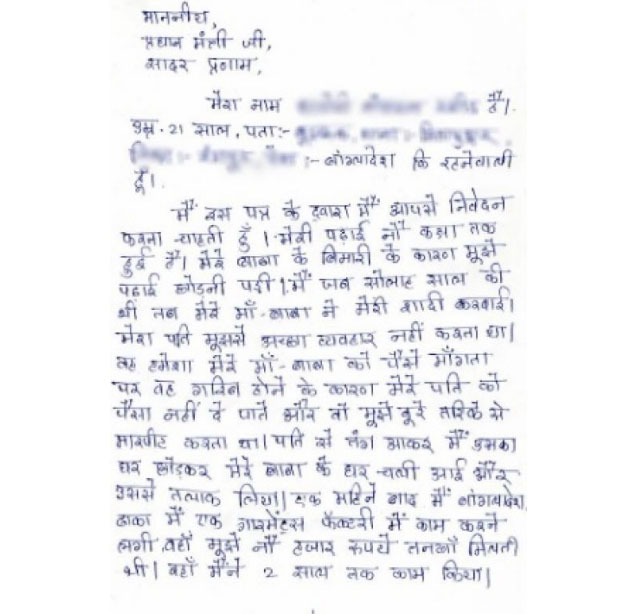 माननीय,
प्रधान मंत्री जी,
सादर प्रणाम,
मेरा नाम है।
उम्र. 21 साल, पता:-
:- बांग्लादेश कि रहनेवाली
हूँ।
मैं इस पत्र के द्वारा मैं आपसे निवेदन
करना चाहती हूँ । मेरी पढ़ाई नौ कक्षा तक
हुई है। मेरे बाबा के बिमारी के कारण मुझे
पढाई छोड़नी पड़ी। मैं जब सोलाह साल की
थी तब मेरे माँ-बाबा ने मेरी शादी करवाई।
मेरा पति मुझसे अच्छा व्यवहार नहीं करता था।
वह हमेशा मेरे माँ-बाबा को पैसे माँगता
पर वह गरिब होने के कारण मेरे पति को
पैसा नहीं दे पाते और वो मुझे बूरे तरिके से
मारपीट करता था। पति से तंग आकर मैं उसका
घर छोड़कर मेरे बाबा के घर चली आई और
उससे तलाक लिया। एक महिने बाद मैं बांग्लादेश,
ढाका में एक गारमेंट्स फॅक्टरी में काम करने
लगी, वहाँ मुझे नौ हजार रुपये तनखाँ मिलती
थी। वहाँ मैंने 2 साल तक काम किया।